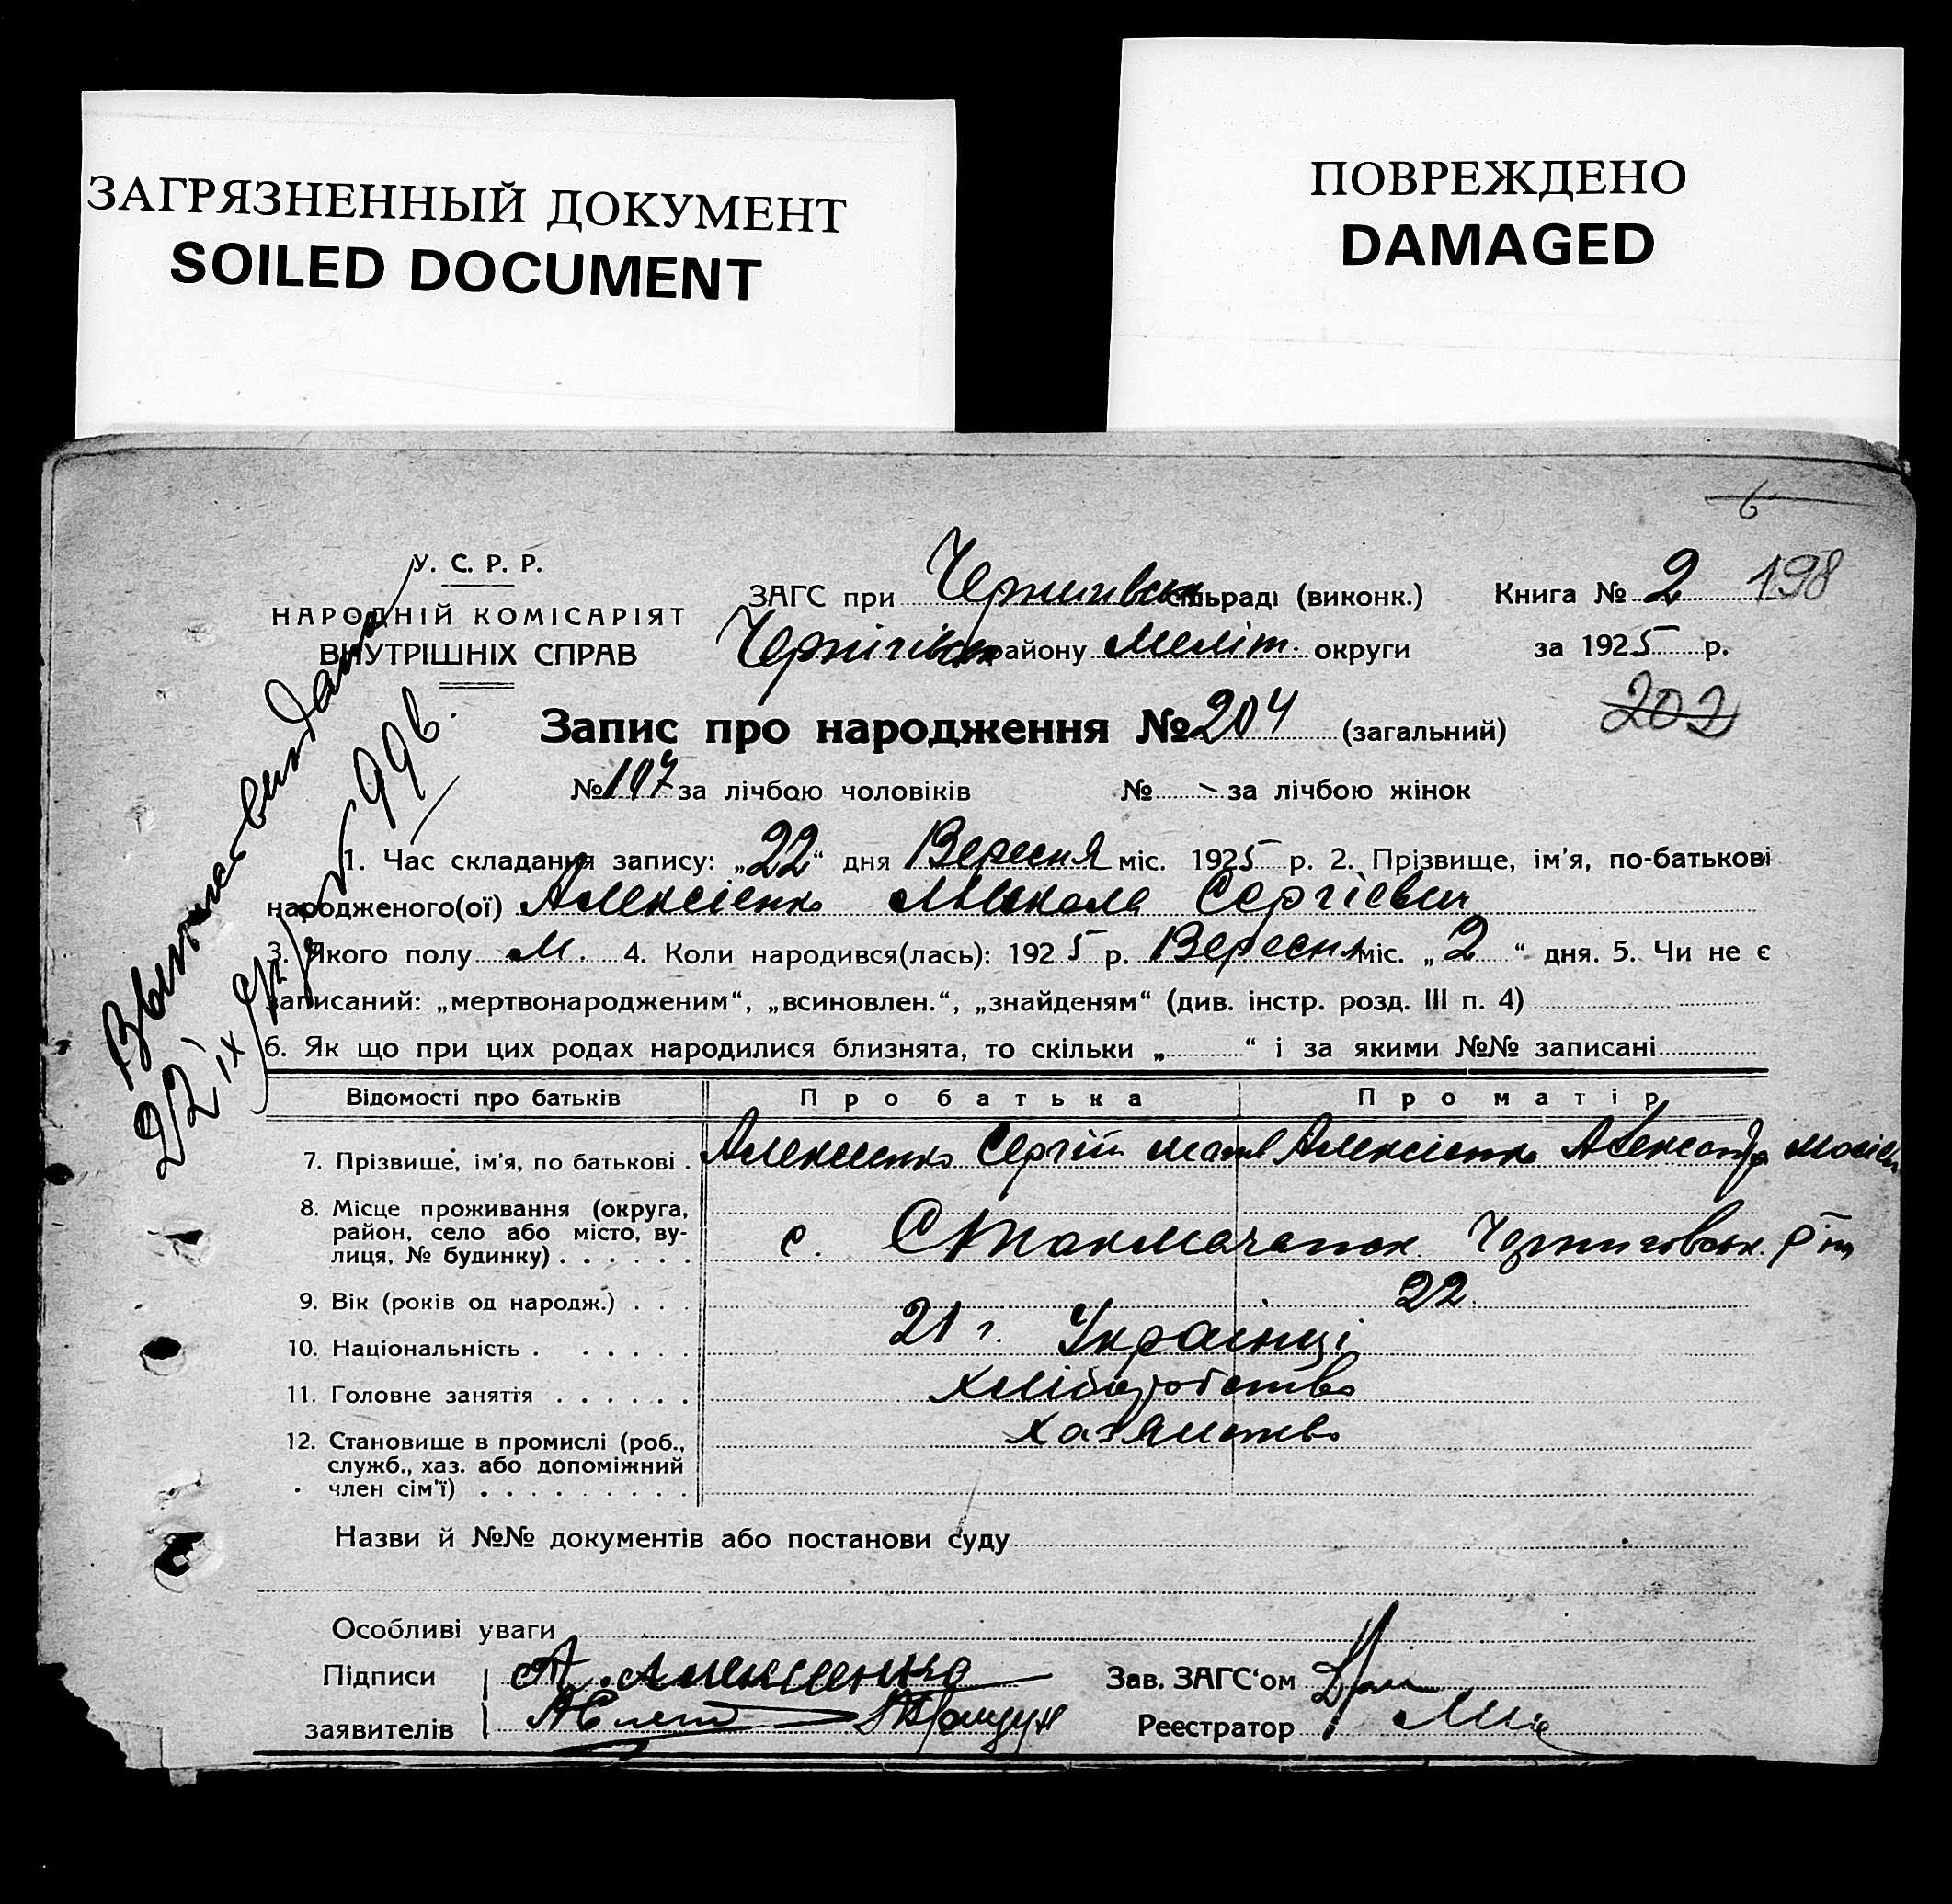 ЗАГРЯЗНЕННЫЙ ДОКУМЕНТ
SOILED DOCUMENT
ПОВРЕЖДЕНО
DAMAGED
6
У. С. Р. Р.
НАРОДНІЙ КОМІСАРІЯТ
ВНУТРІШНІХ СПРАВ
ЗАГС при Чернигівськ сільраді (виконк.) Книга № 2 198
Чернігівськ району Меліт. округи за 1925 р.
Запис про народження № 204 (загальний) 202
№ 107 за лічбою чоловіків № - за лічбою жінок
1. Час складання запису: „22“ дня Вересня міс. 1925 р. 2. Прізвище, ім'я, по-батькові
народженого(ої) Алексієнко Микола Сергієвич
3. Якого полу М. 4. Коли народився(лась): 1925 р. Вересня міс. „2“ дня. 5. Чи не є
записаний: „мертвонародженим“, „всиновлен.“, „знайденям“ (див. інстр. розд. III п. 4)
6. Як що при цих родах народилися близнята, то скільки „ “ і за якими №№ записані
Відомості про батьків Про батька Про матір
7. Прізвище, ім'я, по батькові . Алексієнко Сергій Алексієнко Александра
8. Місце проживання (округа,
район, село або місто, ву-
лиця, № будинку) . . . . . . с. Стокмачанськ Черниговськ. р-ну
9. Вік (років од народж.) . . . 21 г. 22
10. Національність . . . . . . Українці
11. Головне заняття . . . . . . хліборобство
12. Становище в промислі (роб.,
служб., хаз. або допоміжний
член сім'ї) . . . . . . . . . хазяйство
Назви й №№ документів або постанови суду
Особливі уваги
Підписи А. Алексієнко Зав. ЗАГС'ом
заявителів Реєстратор
22 IX
996.